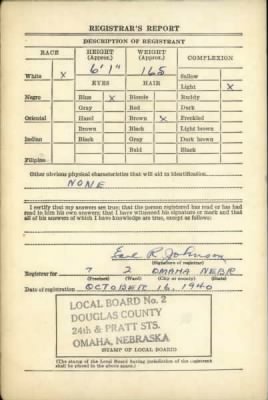 REGISTRAR'S REPORT
DESCRIPTION OF REGISTRANT
RACE HEIGHT (Approx.) WEIGHT (Approx.) COMPLEXION
6' 1" 165
White X EYES HAIR Sallow
Light X
Negro Blue X Blonde Ruddy
Gray Red Dark
Oriental Hazel Brown X Freckled
Brown Black Light brown
Indian Black Gray Dark brown
Bald Black
Filipino
Other obvious physical characteristics that will aid in identification
NONE
I certify that my answers are true; that the person registered has read or has had read to him his own answers; that I have witnessed his signature or mark and that all of his answers of which I have knowledge are true, except as follows:
Earl R. Johnson
(Signature of registrar)
Registrar for 7 2 OMAHA NEBR
(Precinct) (Ward) (City or county) (State)
Date of registration OCTOBER 16, 1940
LOCAL BOARD No. 2
DOUGLAS COUNTY
24th & PRATT STS.
OMAHA, NEBRASKA
(STAMP OF LOCAL BOARD)
(The stamp of the Local Board having jurisdiction of the registrant
shall be placed in the above space.)